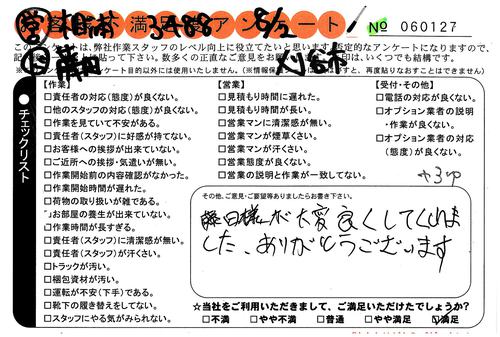 お客様不満足度アンケート
№ 060127
㊡ 相南 3488 8/2
藤田 刈谷市
このアンケートは、弊社作業スタッフのレベル向上に役立てたいと思います。否定的なアンケートになりますので、
●チェックリスト
【作業】
□責任者の対応(態度)が良くない。
□他のスタッフの対応(態度)が良くない。
□作業を見ていて不安がある。
□責任者(スタッフ)に好感が持てない。
□お客様への挨拶が出来ていない。
□ご近所への挨拶・気遣いが無い。
□作業開始前の内容確認がなかった。
□作業開始時間が遅れた。
□荷物の取り扱いが雑である。
□お部屋の養生が出来ていない。
□作業時間が長すぎる。
□責任者(スタッフ)に清潔感が無い。
□責任者(スタッフ)が汗くさい。
□トラックが汚い。
□梱包資材が汚い。
□運転が不安(下手)である。
□靴下の履き替えをしてない。
□スタッフにやる気がみられない。
【営業】
□見積もり時間に遅れた。
□見積もり時間が長い。
□営業マンに清潔感が無い。
□営業マンが煙草くさい。
□営業マンが汗くさい。
□営業態度が良くない。
□営業の説明と作業が一致してない。
【受付・その他】
□電話の対応が良くない。
□オプション業者の説明
・作業が良くない。
□オプション業者の対応
(態度)が良くない。
+3cp
その他、ご意見・ご要望等ありましたらお書き下さい。
藤田様が大変良くしてくれま
した、ありがとうございます
☆当社をご利用いただきまして、ご満足いただけたでしょうか?
□不満 □やや不満 □普通 □やや満足 ☑満足